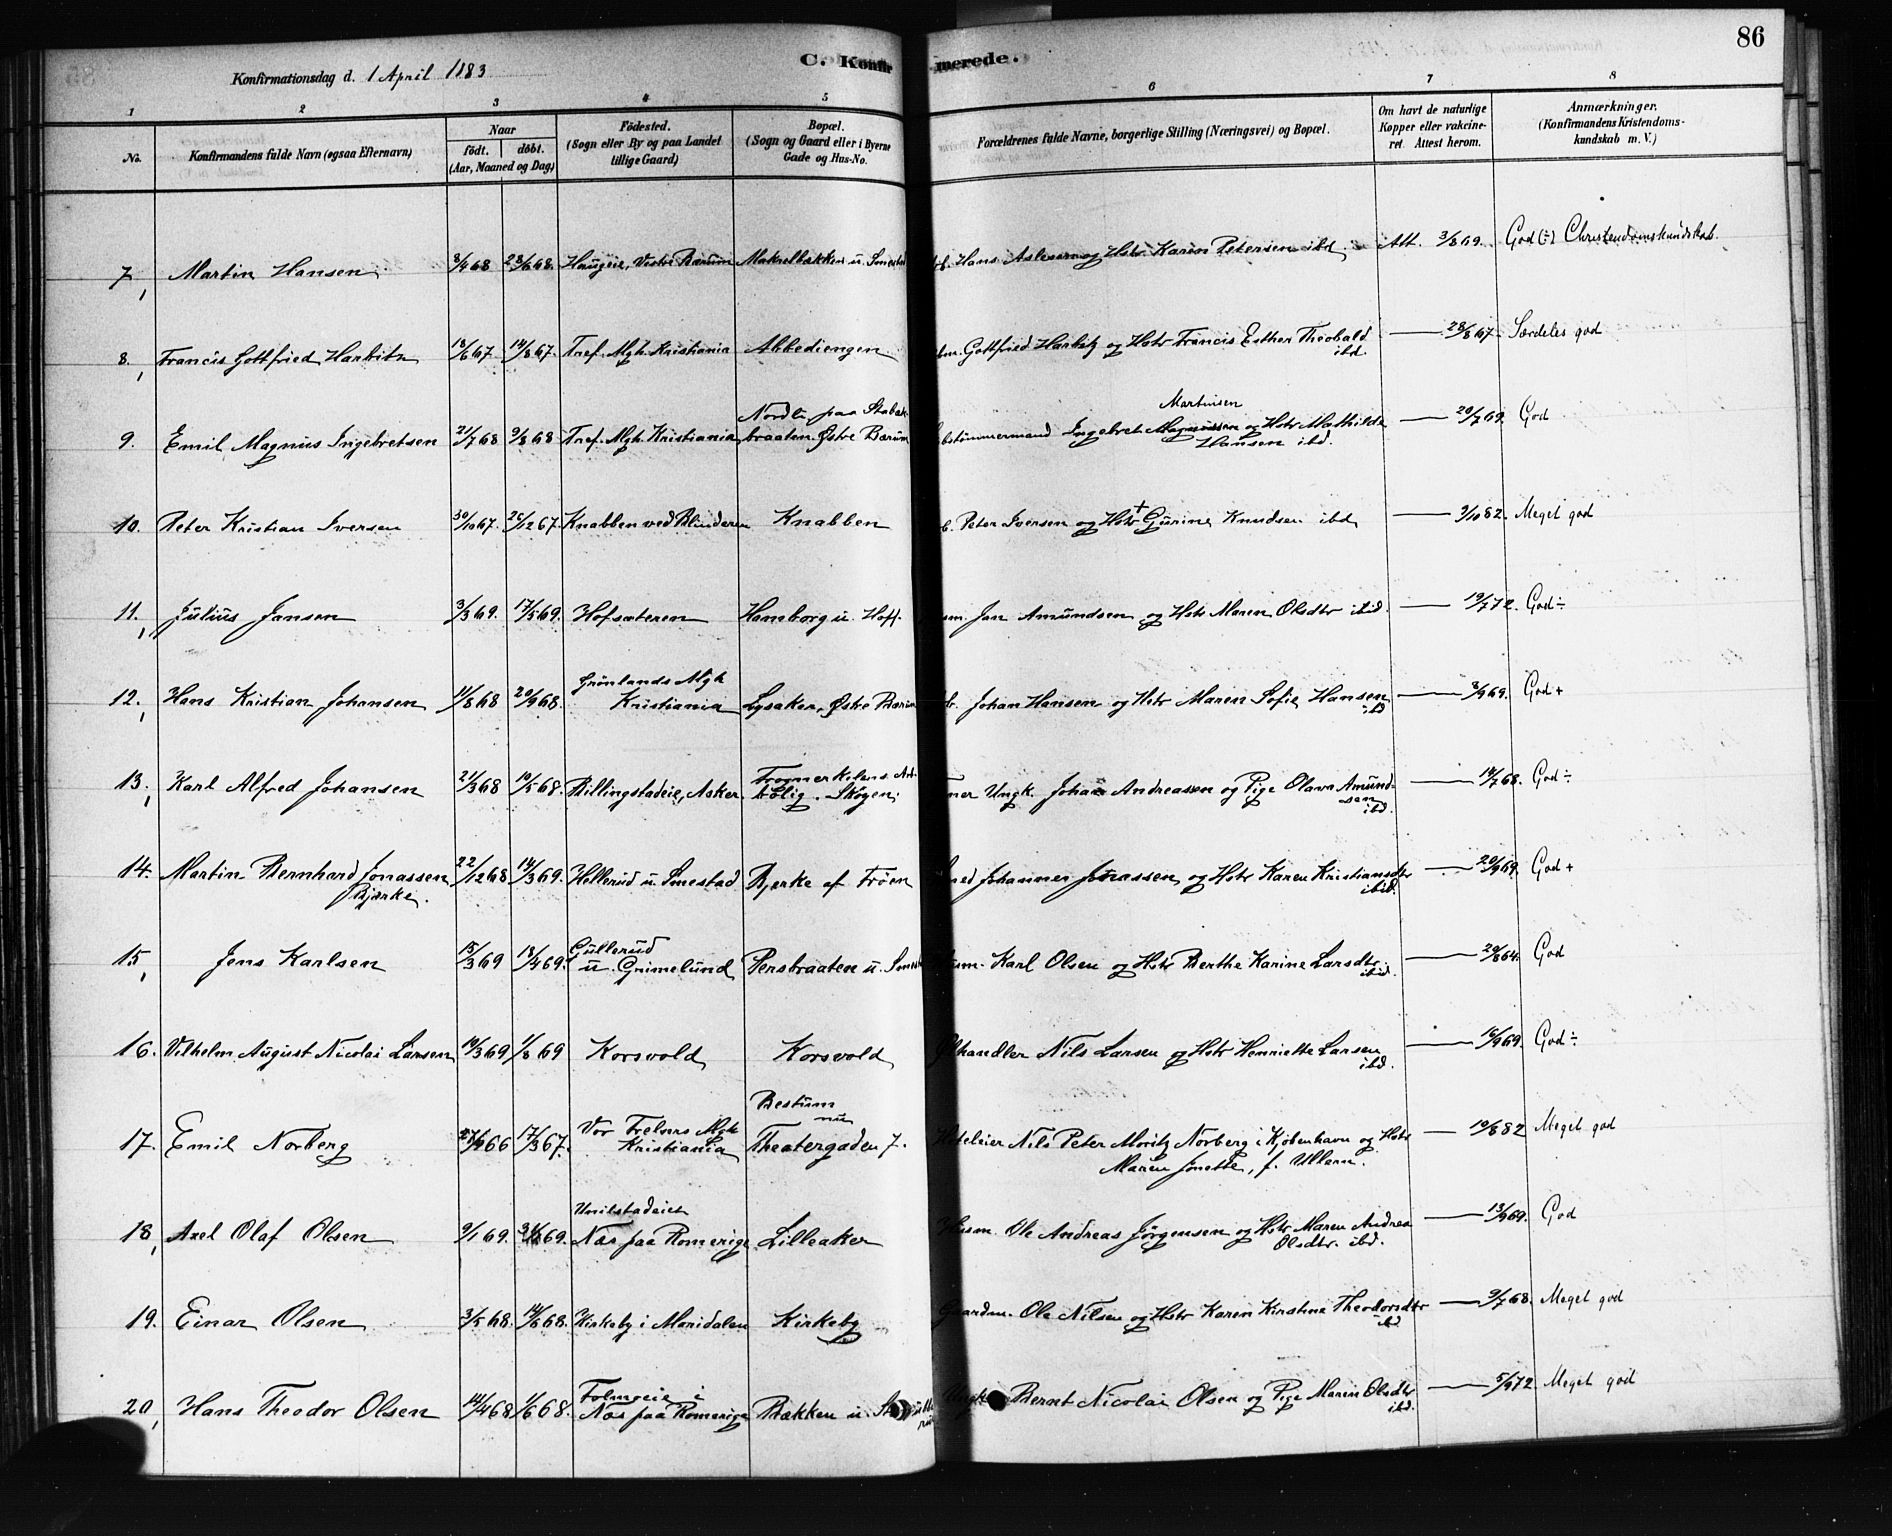 86
Konfirmationsdag d. 1 April 1883
C. Konfirmerede.
1 2 3 4 5 6 7 8
No.
Konfirmandens fulde Navn (ogsaa Efternavn)
Naar
födt. döbt.
(Aar, Maaned og Dag)
Födested.
(Sogn eller By og paa Landet
tillige Gaard)
Bopæl.
(Sogn og Gaard eller i Byerne
Gade og Hus-No.
Forældrenes fulde Navne, borgerlige Stilling (Næringsvei) og Bopæl.
Om havt de naturlige
Kopper eller vakcine-
ret. Attest herom.
Anmærkninger.
(Konfirmandens Kristendoms-
kundskab m. V.)
7, Martin Hansen 3/4 68 28/6 68. Haugeie, Vestre Bærum Makrelbækken u. Smestad Hans Aslesen og Hstr Karen Petersen ibd Att. 3/8 69. God (÷) Christendomskundskab.
8, Francis Gottfried Harbitz 18/6 67 14/8 67. Tref. Mgh. Kristiania Abbediengen Gottfried Harbitz og Hstr Francis Esther Theobald
ibd. — 28/8 67. Særdeles god
9. Emil Magnus Ingebretsen 21/7 68 9/8 68 Tref. Mgh. Kristiania Nordli paa Stabæk-
braaten Østre Bærum Martinsen
tømmermand Ingebret og Hstr Mathilde
Hansen ibd. — 20/7 69. God
10. Peter Kristian Iversen 30/10 67. 25/12 67. Knabben ved Blinderen Knabben Peter Iversen og Hstr + Gurine Knudsen ibd — 9/10 82. Meget god
11, Julius Jansen 3/3 69. 17/5 69. Hofsæteren Hamborg u. Hoff. Jan Amundsen og Hstr Maren Olsdtr ibid. — 19/7 72. God ÷
12, Hans Kristian Johansen 11/8 68 20/9 68. Grönlands Mgk
Kristiania Lysaker, Østre Bærum Johan Hansen og Hstr Maren Sofie Hansen
ibd — 3/9 69. God +
13, Karl Alfred Johansen 21/3 68 10/5 68. Billingstadeie, Asker.
bolig. Skøyen. Ungk. Johan Andreassen og Pige Olava Amund-
sen
ibd. — 14/7 68. God ÷
14. Martin Bernhard Jonassen
Bjærke. 22/12 68 14/3 69. Hellerud u. Smestad Bjerke af Frøen Johannes Jonassen og Hstr Karen Kristiansdtr
ibid. — 20/9 69. God +
15, Jens Karlsen 15/3 69 18/4 69. Gullerud
u. Grimelund Persbraaten u. Karl Olsen og Hstr Berthe Karine Larsdtr.
ibid. — 20/8 64. God
16. Vilhelm August Nicolai Larsen 10/3 69 1/8 69 Korsvold Korsvold Nils Larsen og Hstr Henriette Larsen
ibd. — 16/9 69. God ÷
17. Emil Norberg 17/3 67. Vor Frelsers Mgk
Kristiania Bestum
nu
Theatergaden 7. Hoteleier Nils Peter Moritz Norberg i Kjøbenhavn og Hstr
Maren Jonette, f. Ullern. — 10/8 82 Meget god
18, Axel Olaf Olsen 9/1 69.
Næs paa Romerige Lilleaker Husm. Ole Andreas Jørgensen og Hstr Maren Andrea
Olsdtr. ibd. — 13/9 69. God
19. Einar Olsen 3/5 68. 14/6 68. Kirkeby i Maridalen Kirkeby Gaardm. Ole Nilsen og Hstr Karen Kirstine Theodorsdtr
ibd. — 9/7 68. Meget god
20, Hans Theodor Olsen 10/4 68 1/6 68.
Næs paa Romerige Bækken u. Ungk Bernt Nicolai Olsen og Pige Maren Olsdtr
ibd. — 5/9 72. Meget god